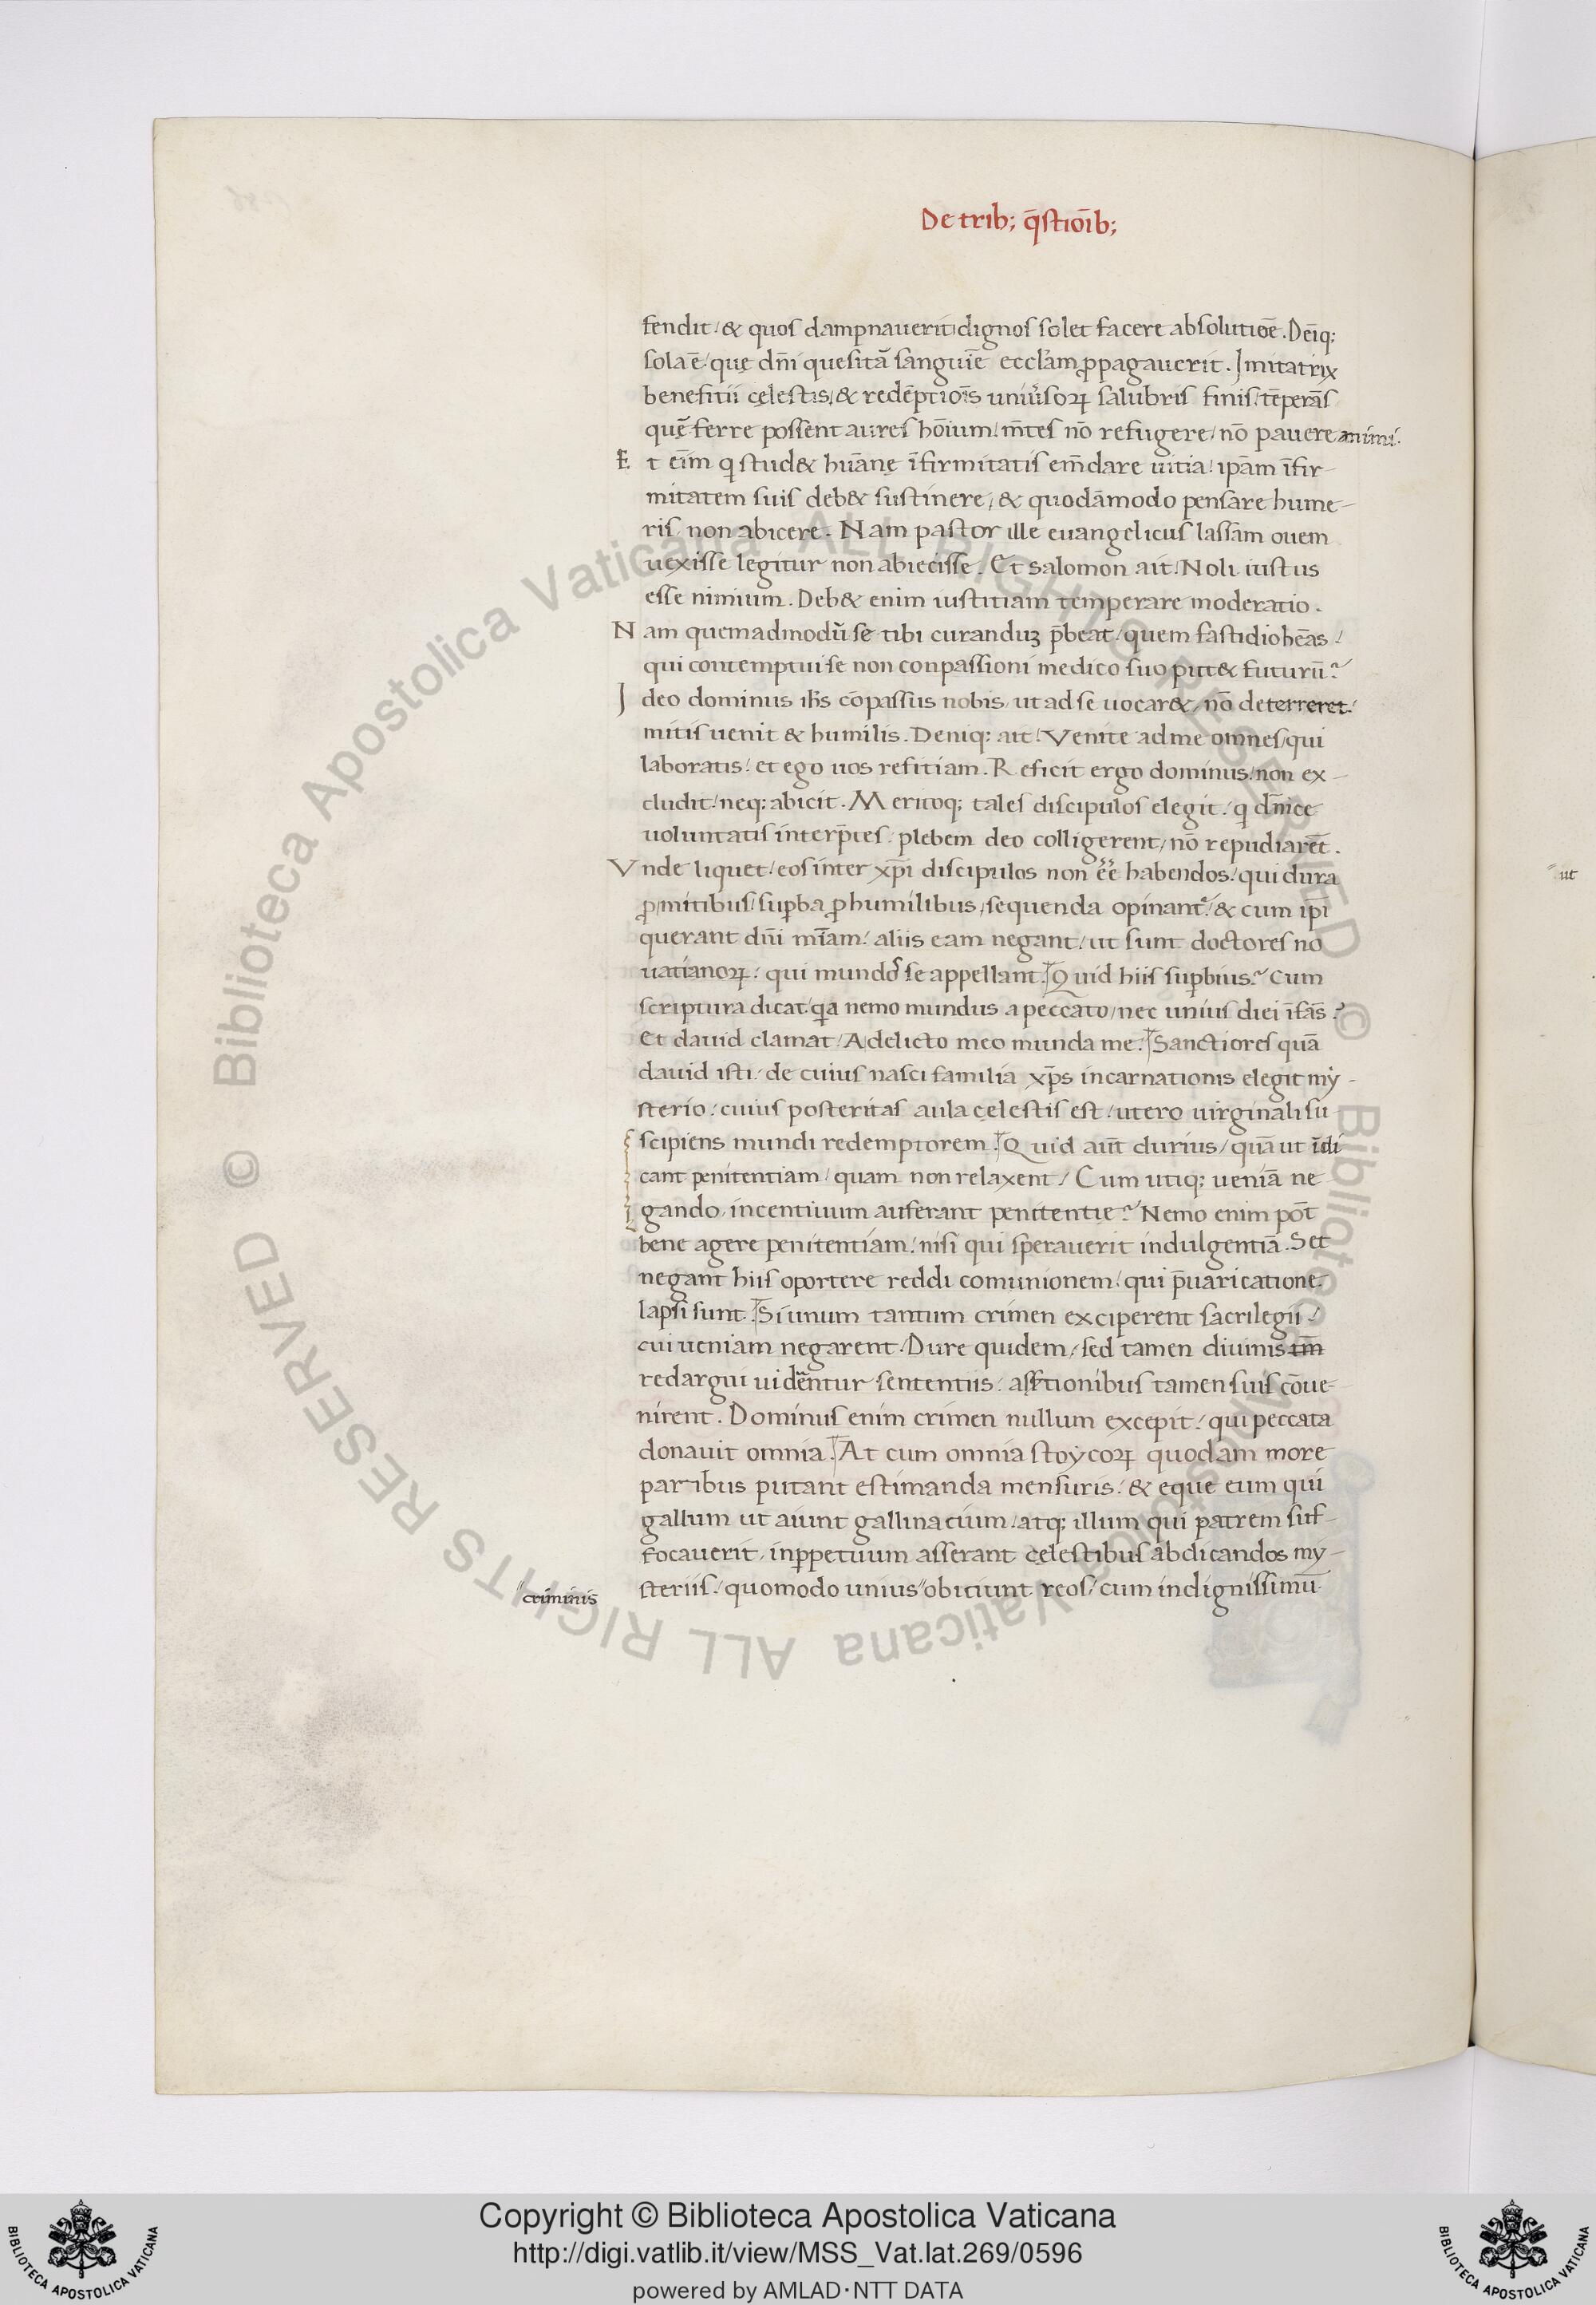 De trib; q̄stiōib;
fendit / & quos dampnauerit dignos solet facere absolutiōe. Deīq;
sola ē / quę dñi quesitā sanguīe eccl'am ꝓpagauerit. Imitatrix
benefitii cęlestis, & redēptiōis uniu'soꝝ salubris finis / tēperās
quę ferre possent aures hōium / m̄tes nō refugere / nō pauere animi.
Et eīm q studet huānę īfirmitatis em̄dare uitia / ipām īfir-
mitatem suis deb& sustinere, & quodāmodo pensare hume-
ris, non abicere. Nam pastor ille euangelicus lassam ouem
uexisse legitur non abiecisse. Et salomon ait / Noli iustus
esse nimium. Deb& enim iustitiam temperare moderatio.
Nam quemadmodū se tibi curanduꝫ p̄beat / quem fastidio hēas /
qui contemptui se non conpassioni medico suo put& futurū?
Ideo dominus ih̄s cōpassus nobis, ut ad se uocar&, nō deterreret /
mitis uenit & humilis. Deniq; ait / Venite ad me omnes, qui
laboratis / et ego uos refitiam. Reficit ergo dominus / non ex-
cludit / neq; abicit. Meritoq; tales discipulos elegit / q dn̄ice
uoluntatis interp̄tes, plebem deo colligerent, nō repudiarēt.
Vnde liquet / eos inter xp̄i discipulos non ēē habendos / qui dura
ꝓ mitibus / suꝑba ꝓ humilibus, sequenda opinant' / & cum ipī
querant dñi m̄iam / aliis eam negant / ut sunt doctores no
uatianoꝝ / qui mundos se appellant. Quid hiis suꝑbius? Cum
scriptura dicat / qa nemo mundus a peccato, nec unius diei īfās?
Et dauid clamat / A delicto meo munda me. Sanctiores quā
dauid isti / de cuius nasci familia xp̄s incarnationis elegit my-
sterio / cuius posteritas aula cęlestis est / utero uirginali su
scipiens mundi redemptorem. Quid aūt durius / quā ut īdi
cant penitentiam / quam non relaxent / Cum utiq; ueniā ne
gando, incentiuum auferant penitentię? Nemo enim pōt
bene agere penitentiam / nisi qui sperauerit indulgentiā. Set
negant hiis oportere reddi comunionem / qui p̄uaricatione
lapsi sunt. Si unum tantum crimen exciperent sacrilegii /
cui ueniam negarent. Dure quidem / sed tamen diuinis tm̄
redargui uiderentur sententiis / assertionibus tamen suis cōue-
nirent. Dominus enim crimen nullum excepit / qui peccata
donauit omnia. At cum omnia stoycoꝝ quodam more
paribus putant estimanda mensuris / & eque eum qui
gallum ut aiunt gallinacium / atq; illum qui patrem suf-
focauerit, inꝑpetuum asserant cęlestibus abdicandos my-
steriis / quomodo unius '' obitiunt reos / cum indignissimū
'' criminis
'' ut
Copyright © Biblioteca Apostolica Vaticana
http://digi.vatlib.it/view/MSS_Vat.lat.269/0596
powered by AMLAD·NTT DATA
BIBLIOTECA APOSTOLICA VATICANA
BIBLIOTECA APOSTOLICA VATICANA
© Biblioteca Apostolica Vaticana ALL RIGHTS RESERVED © Biblioteca Apostolica Vaticana ALL RIGHTS RESERVED